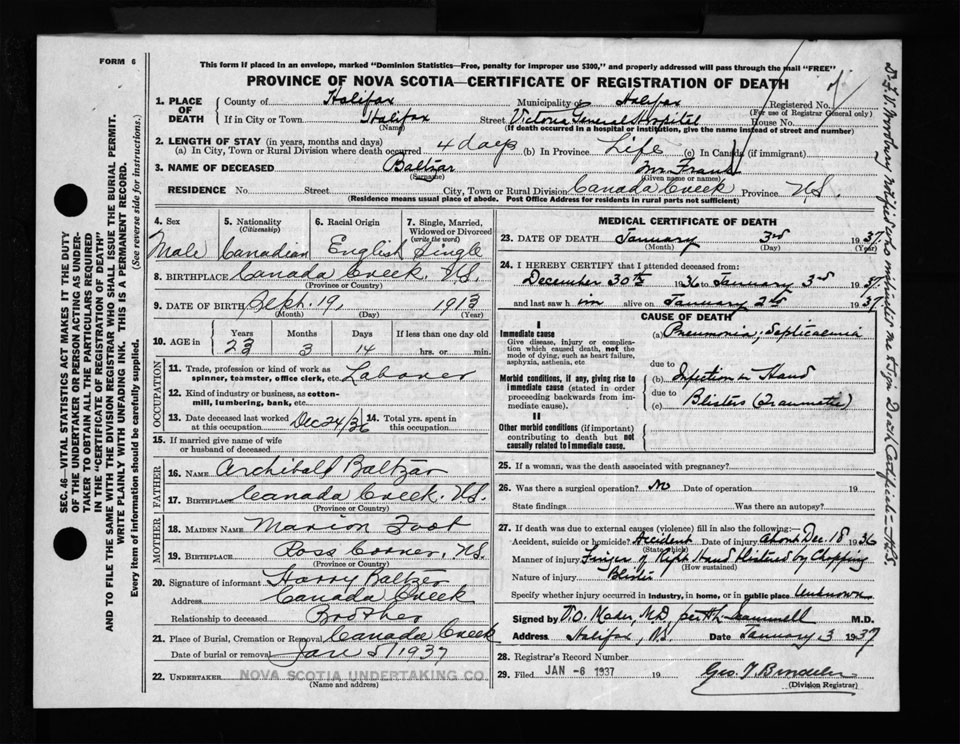 FORM 6
This form if placed in an envelope, marked "Dominion Statistics—Free, penalty for improper use $300," and properly addressed will pass through the mail "FREE"
PROVINCE OF NOVA SCOTIA—CERTIFICATE OF REGISTRATION OF DEATH
SEC. 46—VITAL STATISTICS ACT MAKES IT THE DUTY
OF THE UNDERTAKER OR PERSON ACTING AS UNDER-
TAKER TO OBTAIN ALL THE PARTICULARS REQUIRED
IN THE "CERTIFICATE OF REGISTRATION OF DEATH"
AND TO FILE THE SAME WITH THE DIVISION REGISTRAR WHO SHALL ISSUE THE BURIAL PERMIT.
WRITE PLAINLY WITH UNFADING INK. THIS IS A PERMANENT RECORD.
Every item of information should be carefully supplied. (See reverse side for instructions.)
1. PLACE OF DEATH
County of Halifax Municipality of Halifax Registered No.
(For use of Registrar General only)
If in City or Town Halifax Street Victoria General Hospital House No.
(Name) (If death occurred in a hospital or institution, give the name instead of street and number)
2. LENGTH OF STAY (in years, months and days)
(a) In City, Town or Rural Division where death occurred 4 days (b) In Province Life (c) In Canada (if immigrant)
3. NAME OF DECEASED Baltzar Mr. Frank
(Surname) (Given name or names)
RESIDENCE No. Street City, Town or Rural Division Canada Creek Province N.S.
(Residence means usual place of abode. Post Office Address for residents in rural parts not sufficient)
4. Sex Male
5. Nationality (Citizenship) Canadian
6. Racial Origin English
7. Single, Married, Widowed or Divorced (write the word) Single
8. BIRTHPLACE Canada Creek, N.S.
(Province or Country)
9. DATE OF BIRTH Sept. 19, 1913
(Month) (Day) (Year)
10. AGE in Years 23 Months 3 Days 14 If less than one day
hrs. or min.
OCCUPATION
11. Trade, profession or kind of work as
spinner, teamster, office clerk, etc. Laborer
12. Kind of industry or business, as cotton-
mill, lumbering, bank, etc.
13. Date deceased last worked at this occupation Dec 24/36
14. Total yrs. spent in this occupation
15. If married give name of wife
or husband of deceased
FATHER
16. NAME Archibald Baltzar
17. BIRTHPLACE Canada Creek, N.S.
(Province or Country)
MOTHER
18. MAIDEN NAME Marion Foot
19. BIRTHPLACE Ross Corner, N.S.
(Province or Country)
20. Signature of informant Harry Baltzer
Address Canada Creek
Relationship to deceased Brother
21. Place of Burial, Cremation or Removal Canada Creek
Date of burial or removal Jan 5/1937
22. UNDERTAKER NOVA SCOTIA UNDERTAKING CO.
(Name and address)
MEDICAL CERTIFICATE OF DEATH
23. DATE OF DEATH January 3rd 1937
(Month) (Day) (Year)
24. I HEREBY CERTIFY that I attended deceased from:
December 30th 1936 to January 3rd 1937
and last saw him alive on January 2nd 1937
CAUSE OF DEATH
I
Immediate cause
Give disease, injury or complica-
tion which caused death, not the
mode of dying, such as heart failure,
asphyxia, asthenia, etc
(a) Pneumonia, Septicaemia
due to
Morbid conditions, if any, giving rise to
immediate cause (stated in order
proceeding backwards from im-
mediate cause).
(b) Infection in Hand
due to
(c) Blisters (Traumatic)
II
Other morbid conditions (if important)
contributing to death but not
causally related to immediate cause.
25. If a woman, was the death associated with pregnancy?
26. Was there a surgical operation? No Date of operation 19
State findings Was there an autopsy?
27. If death was due to external causes (violence) fill in also the following:—
Accident, suicide or homicide? Accident Date of injury about Dec. 18 1936
(State which)
Manner of injury Finger of Right Hand blistered by Chopping
(How sustained)
Nature of injury Blister
Specify whether injury occurred in industry, in home, or in public place Unknown
Signed by M.D. M.D.
Address Halifax, N.S. Date January 3 1937
28. Registrar's Record Number
29. Filed JAN -6 1937 19
(Division Registrar)